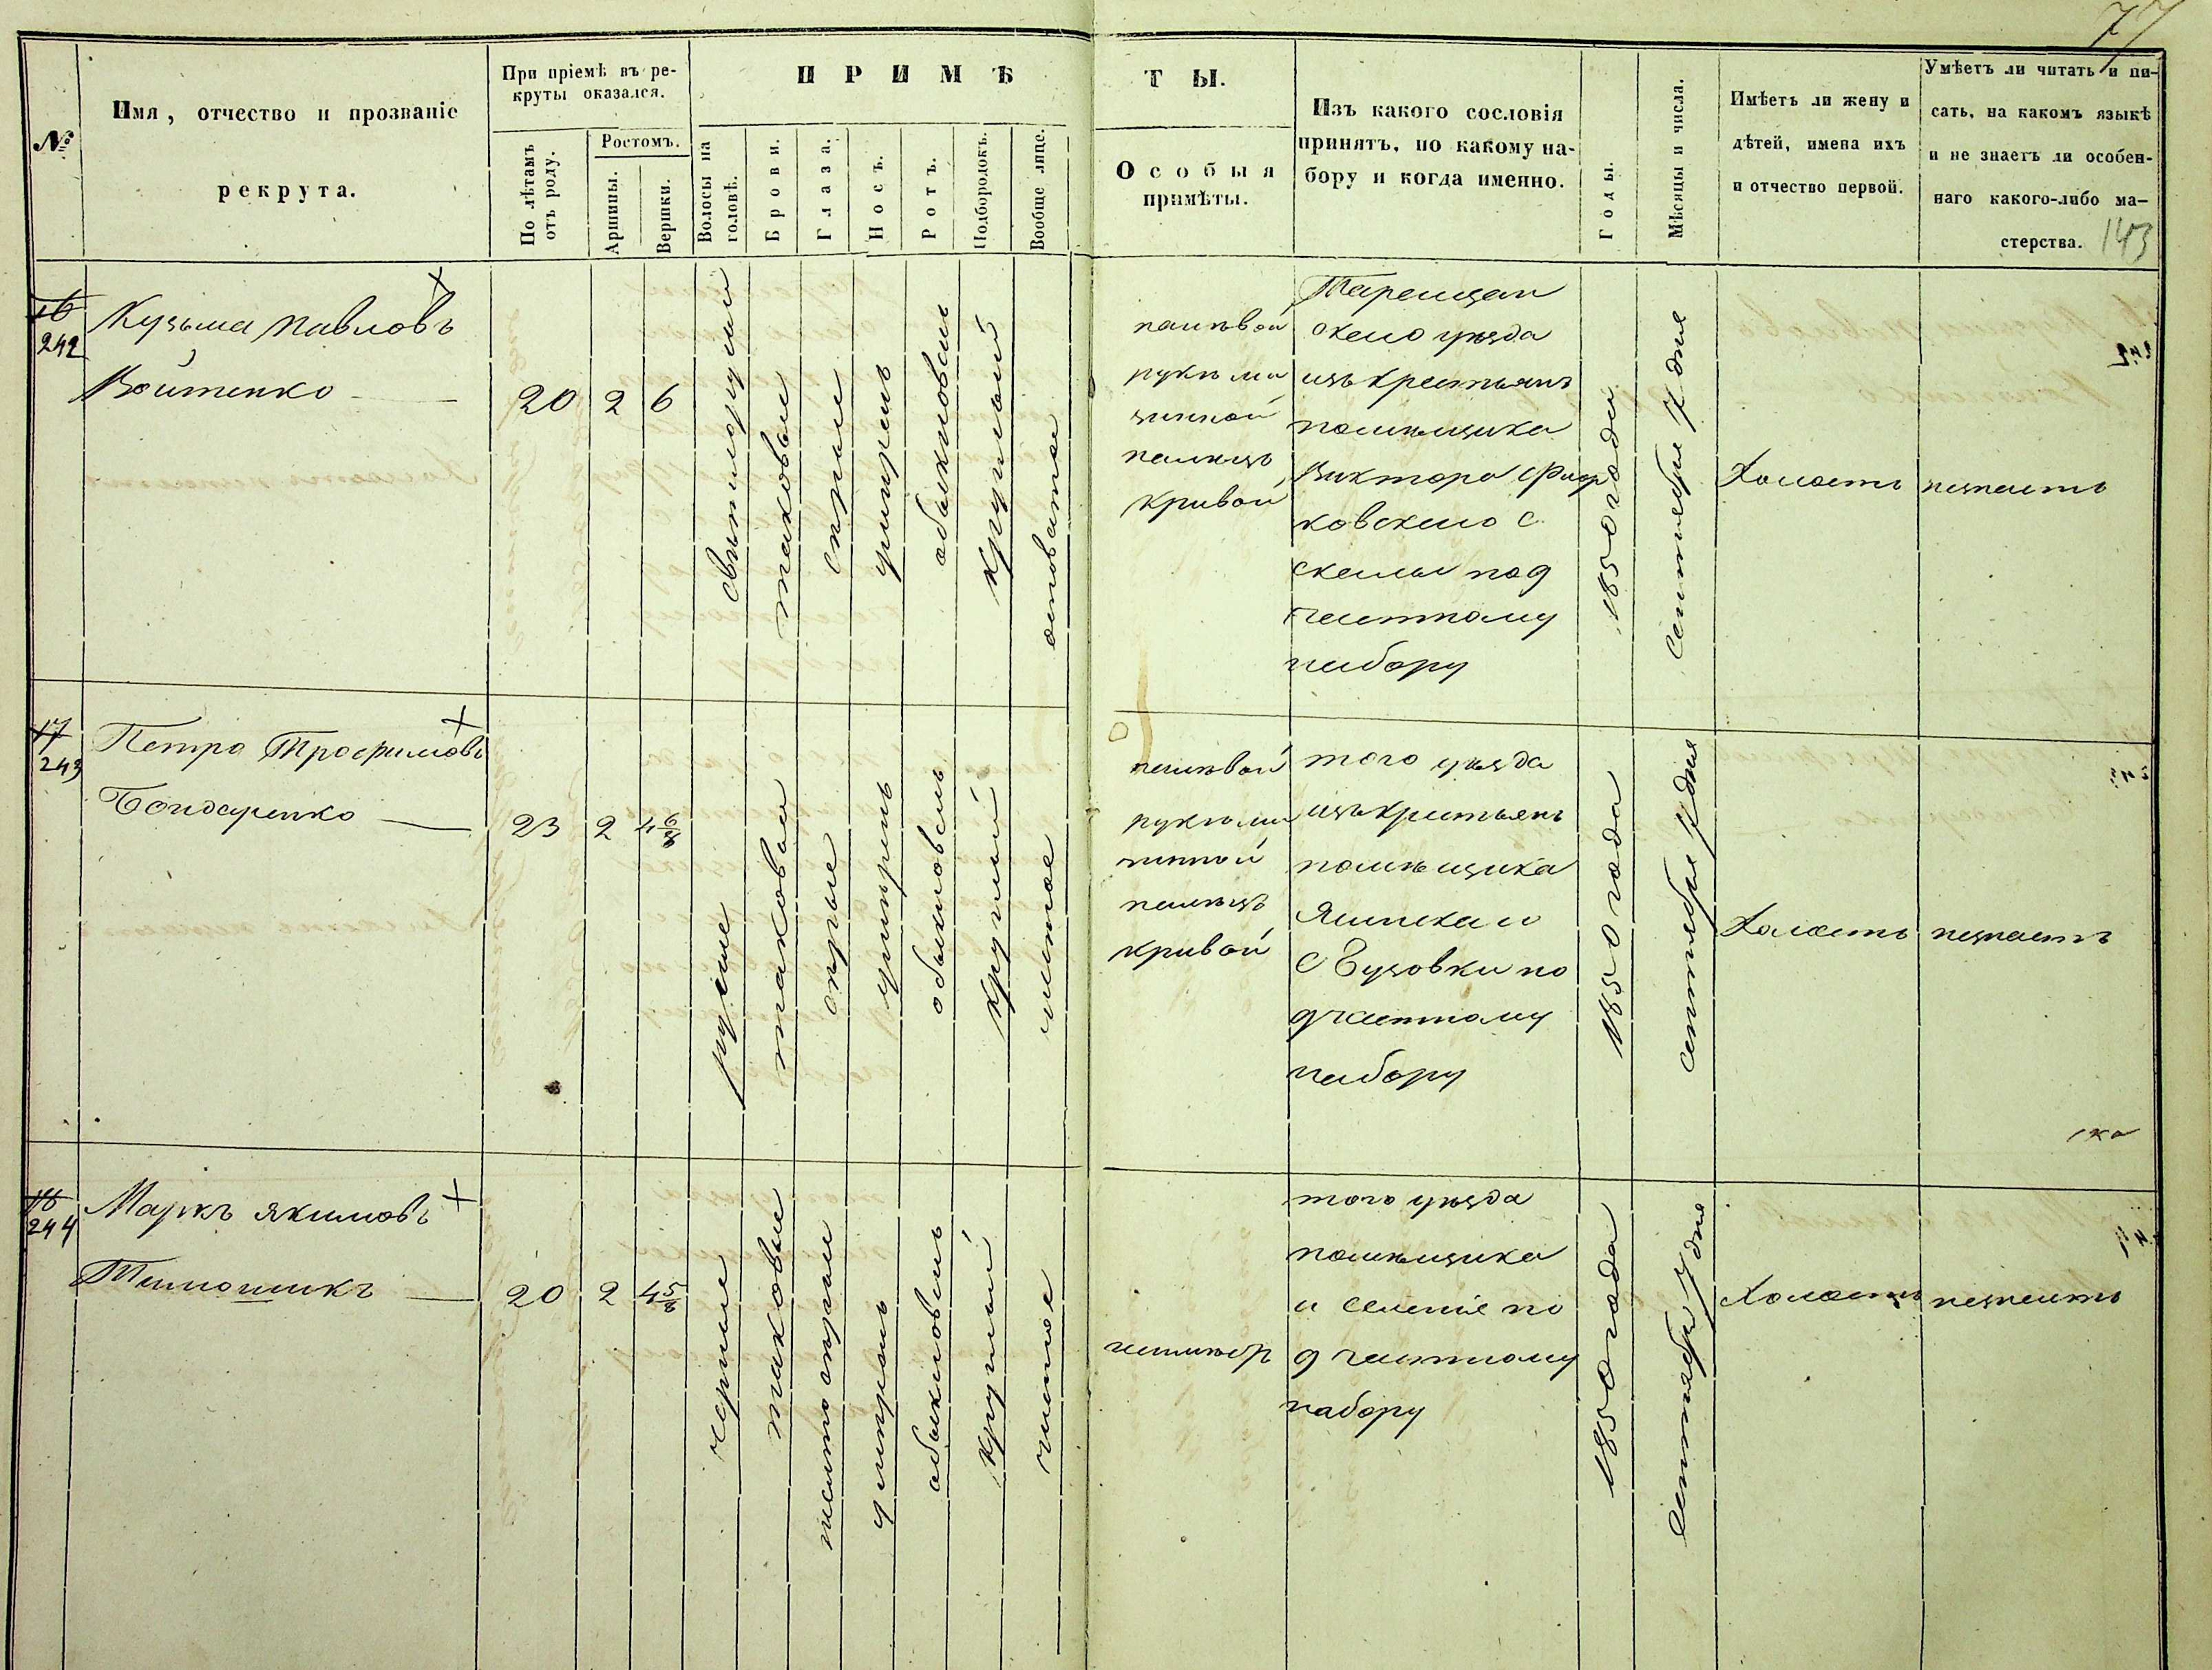 77
№
Имя, отчество и прозваніе
рекрута.
При пріемѣ въ ре-
круты оказался.
По лѣтамъ
отъ роду.
Ростомъ.
Аршины.
Вершки.
ПРИМѢ
Волосы на
головѣ.
Брови.
Глаза.
Носъ.
Ротъ.
Подбородокъ.
Вообще лице.
ТЫ.
Особыя
примѣты.
Изъ какого сословія
принятъ, по какому на-
бору и когда именно.
Годы.
Мѣсяцы и числа.
Имѣетъ ли жену и
дѣтей, имена ихъ
и отчество первой.
Умѣетъ ли читать и пи-
сать, на какомъ языкѣ
и не знаетъ ли особен-
наго какого-либо ма-
стерства.
143
16
242
Кузьма Павловъ
Войтенко
20
2
6
свѣтлорусыи
таковыи
сѣрыи
умѣренъ
обыкновенъ
круглый
на лѣвой
рукѣ ми
зинной
палецъ
кривой
Таращан
скаго уѣзда
изъ крестьянъ
помѣщика
Виктора
ковскаго с.
скалы по 9
частному
набору
1850 года
Сентября 7 дня
Холостъ
незнаетъ
17
243
Петро Трофимовъ
Бондаренко
23
2
4 6/8
русые
таковыи
сѣрые
умѣренъ
обыкновенъ
круглый
чистое
на лѣвой
рукѣ ми
зинной
палецъ
кривой
того уѣзда
изъ крестьянъ
помѣщика
с Бузовки по
9 частному
набору
1850 года
сентября 7 дня
Холостъ
незнаетъ
18
244
Маркъ Якимовъ
Тимошикъ
20
2
4 5/8
черные
таковые
желто сѣрыи
умѣренъ
обыкновенъ
круглый
чистое
неимѣетъ
того уѣзда
помѣщика
и селенія по
9 частному
набору
1850 года
Сентября 7 дня
Холостъ
незнаетъ